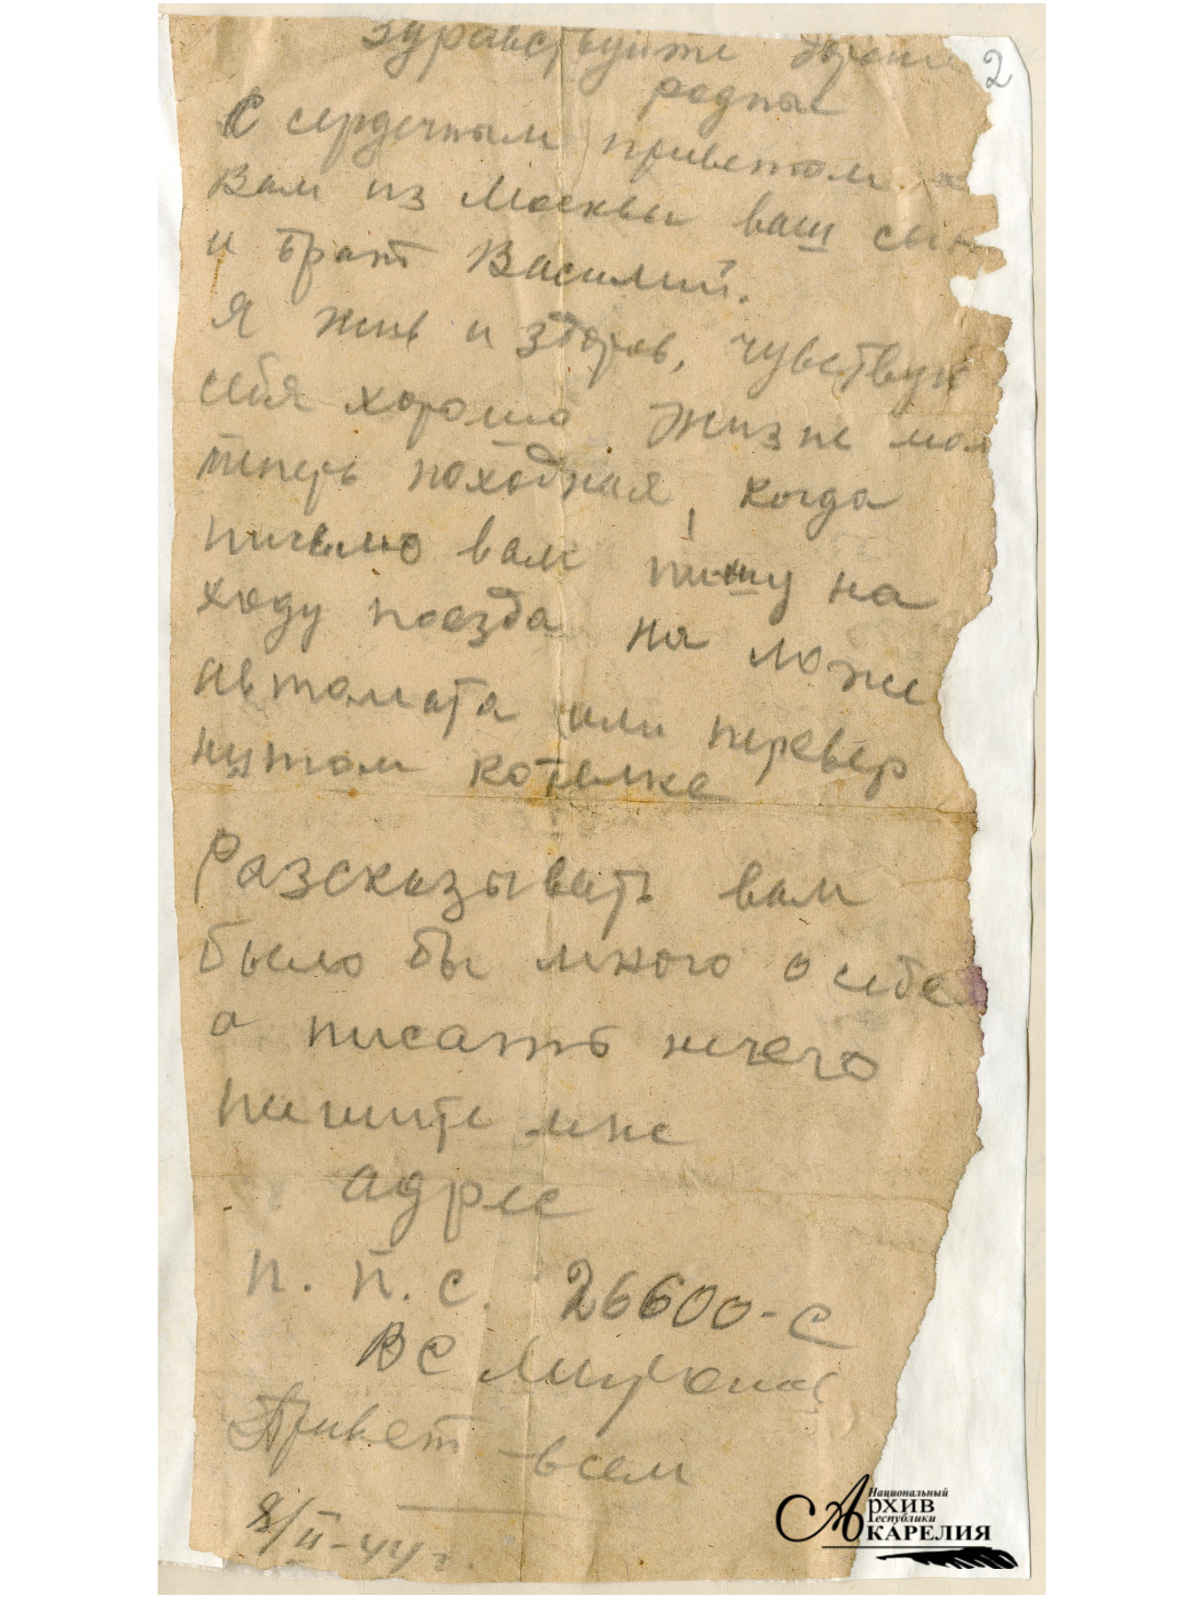 2
Здравствуйте дороги
родные
С сердечным приветом к
Вам из Москвы ваш сын
и брат Василий.
Я жив и здоров, чувствую
себя хорошо Жизне моя
теперь походная, когда
письмо вам пишу на
ходу поезда на ложе
автомата или перевер
нутом котелке
Разсказывать вам
было бы много о себе
а писать нечего
пишите мне
адрес
п. п. с. 26600-С
ВС
Привет всем
8/II-44 г
Национальный
Архив
Республики
Карелия